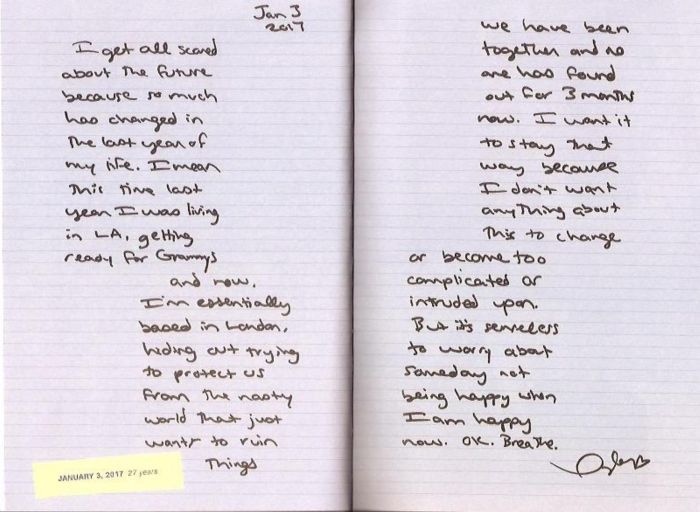 Jan 3
2017
I get all scared
about the future
because so much
has changed in
the last year of
my life. I mean
This time last
year I was living
in LA, getting
ready for Grammys
and now.
I'm essentially
based in London,
hiding out trying
to protect us
from the nasty
world that just
wants to ruin
things
JANUARY 3, 2017 27 years
we have been
together and no
one has found
out for 3 months
now. I want it
to stay that
way because
I don't want
anything about
this to change
or become too
complicated or
intruded upon.
But it's senseless
to worry about
someday not
being happy when
I am happy
now. OK. Breathe.